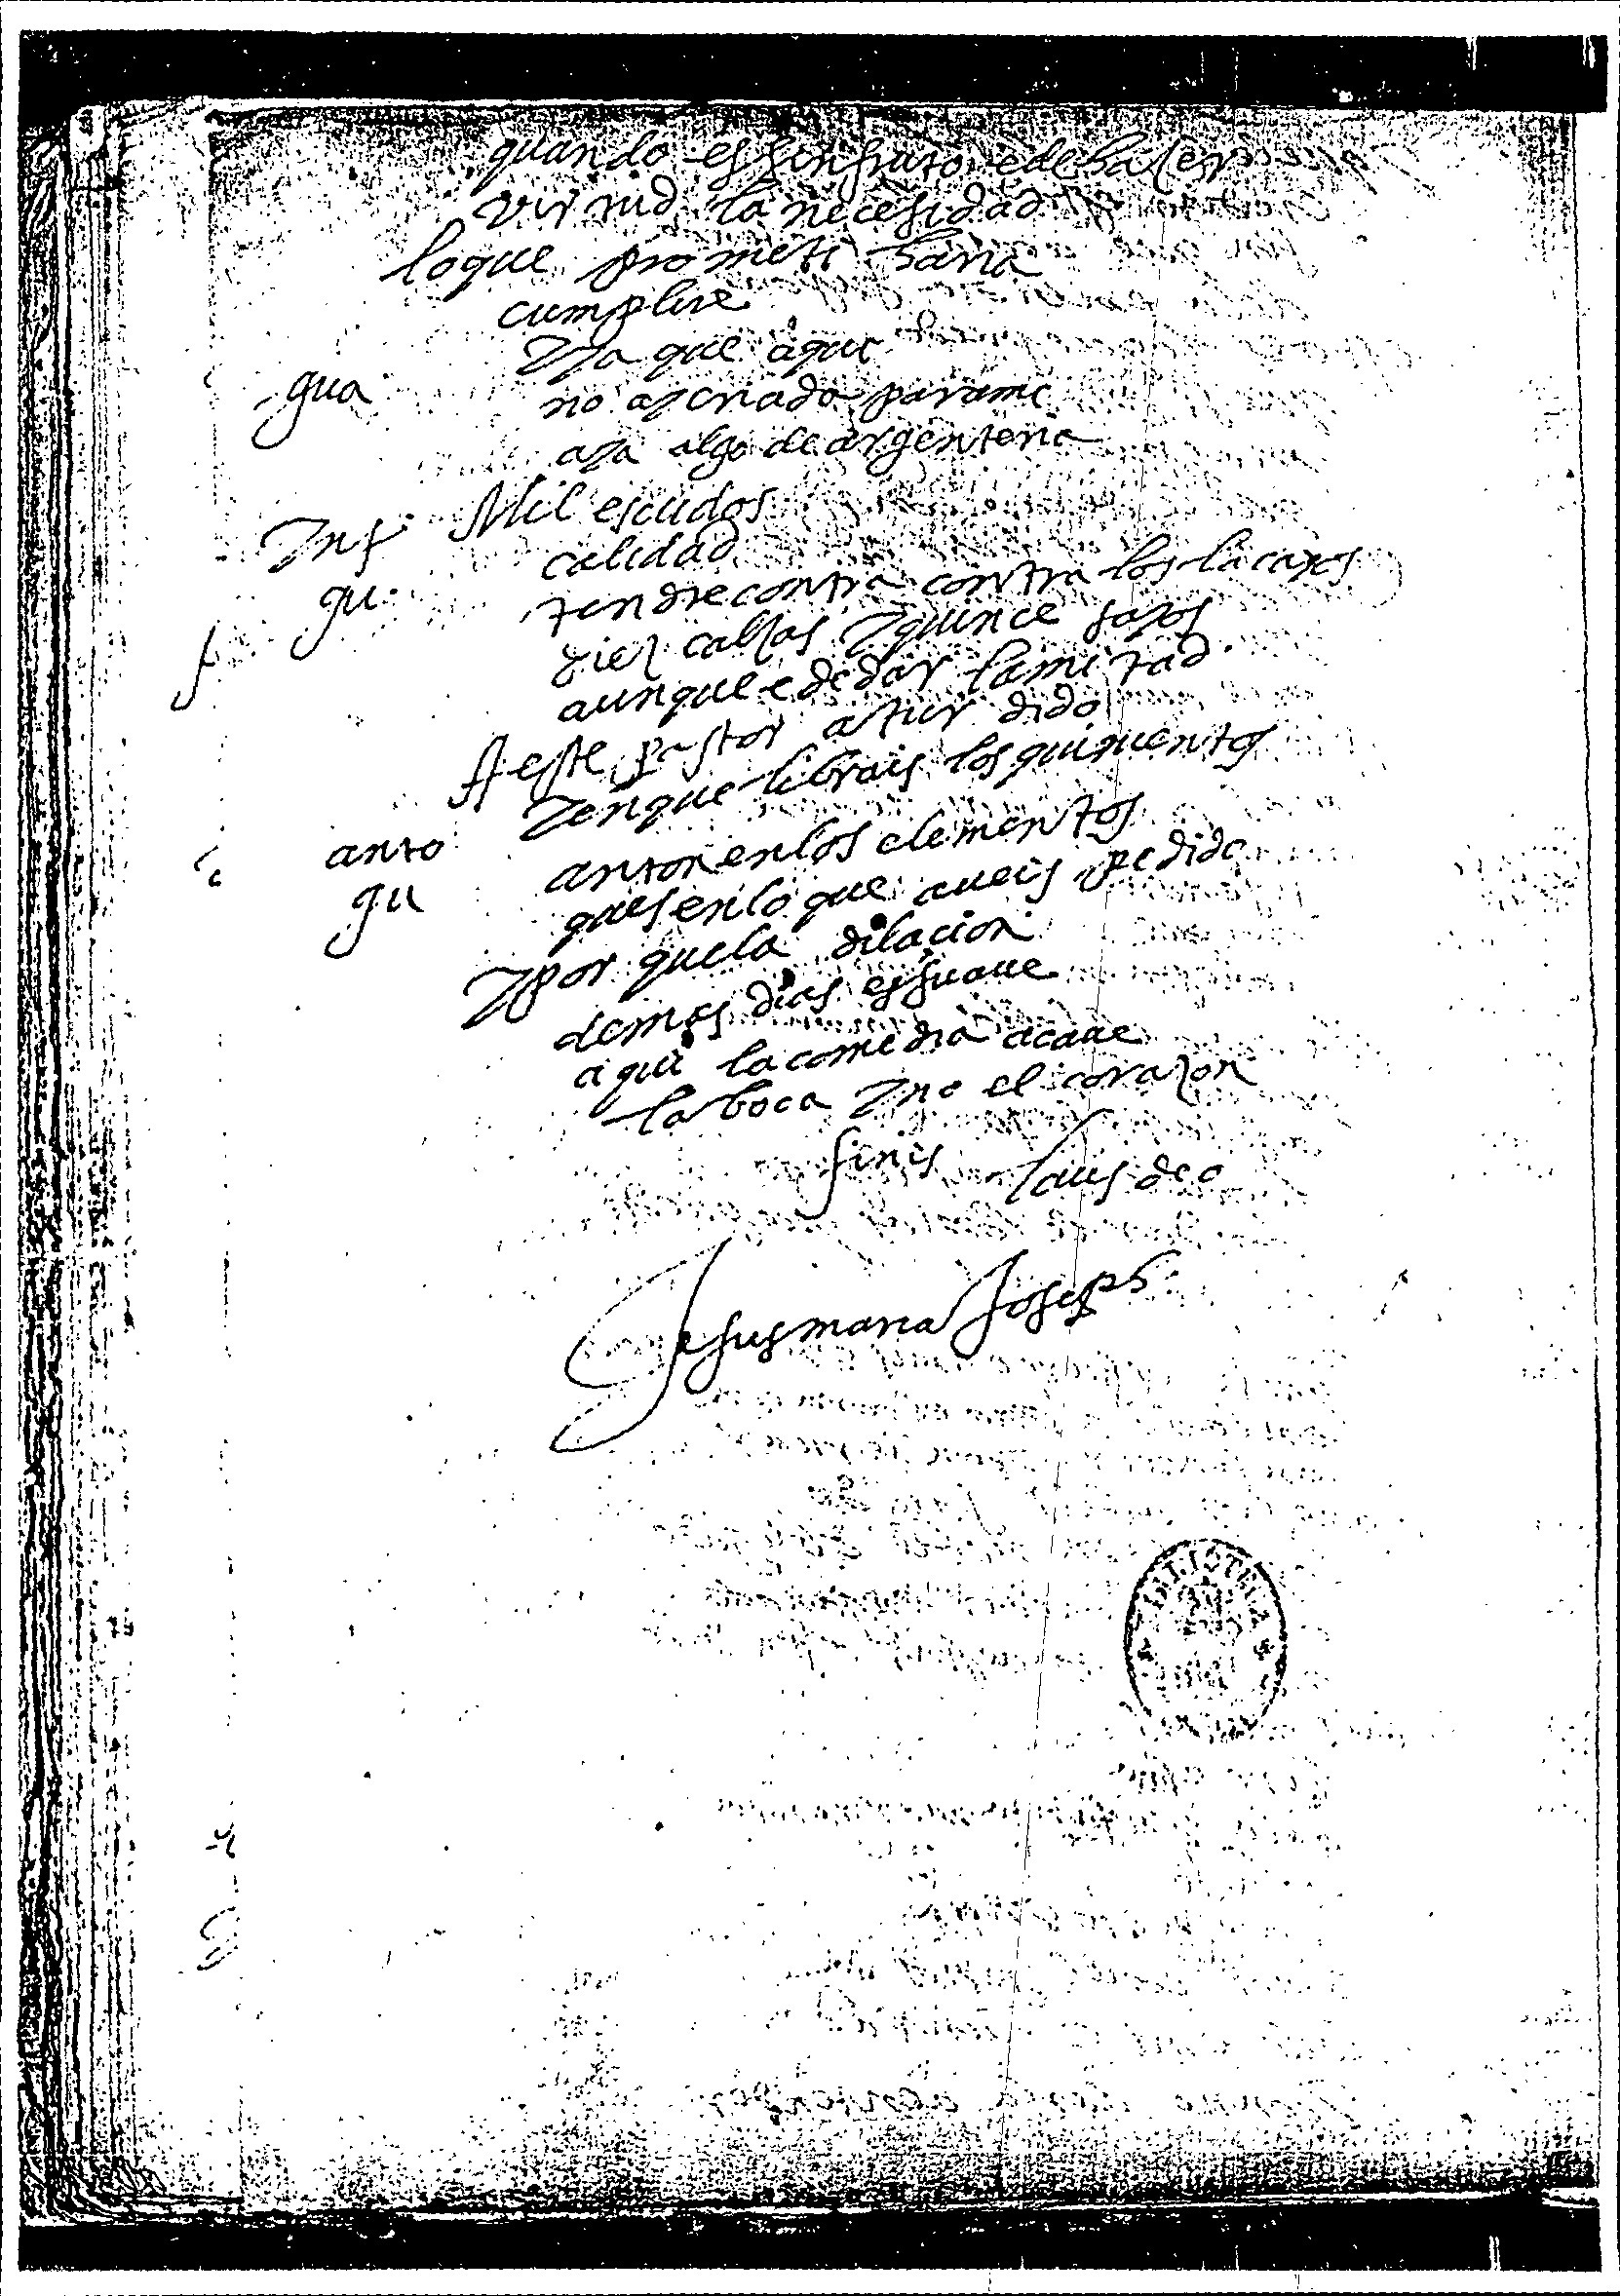 quando es sin fruto e de haçer
virtud la necesidad
lo que prometi haria
cumplire
y ya que aqui
gua no ay criado para mi
aya algo de argenteria
Inf Mil escudos
calidad
gu tendre contra contra los lacayos
diez calzas y quince sayos
aunque e de dar la mitad
A este pastor atur dido
y en que librais los quinientos
anto anton en los elementos
gu pues en lo que aueis pedido
y por que la dilaçion
de mas dias es suaue
aqui la comedia acaue
la boca y no el corazon
finis laus deo
Jesus maria Joseph